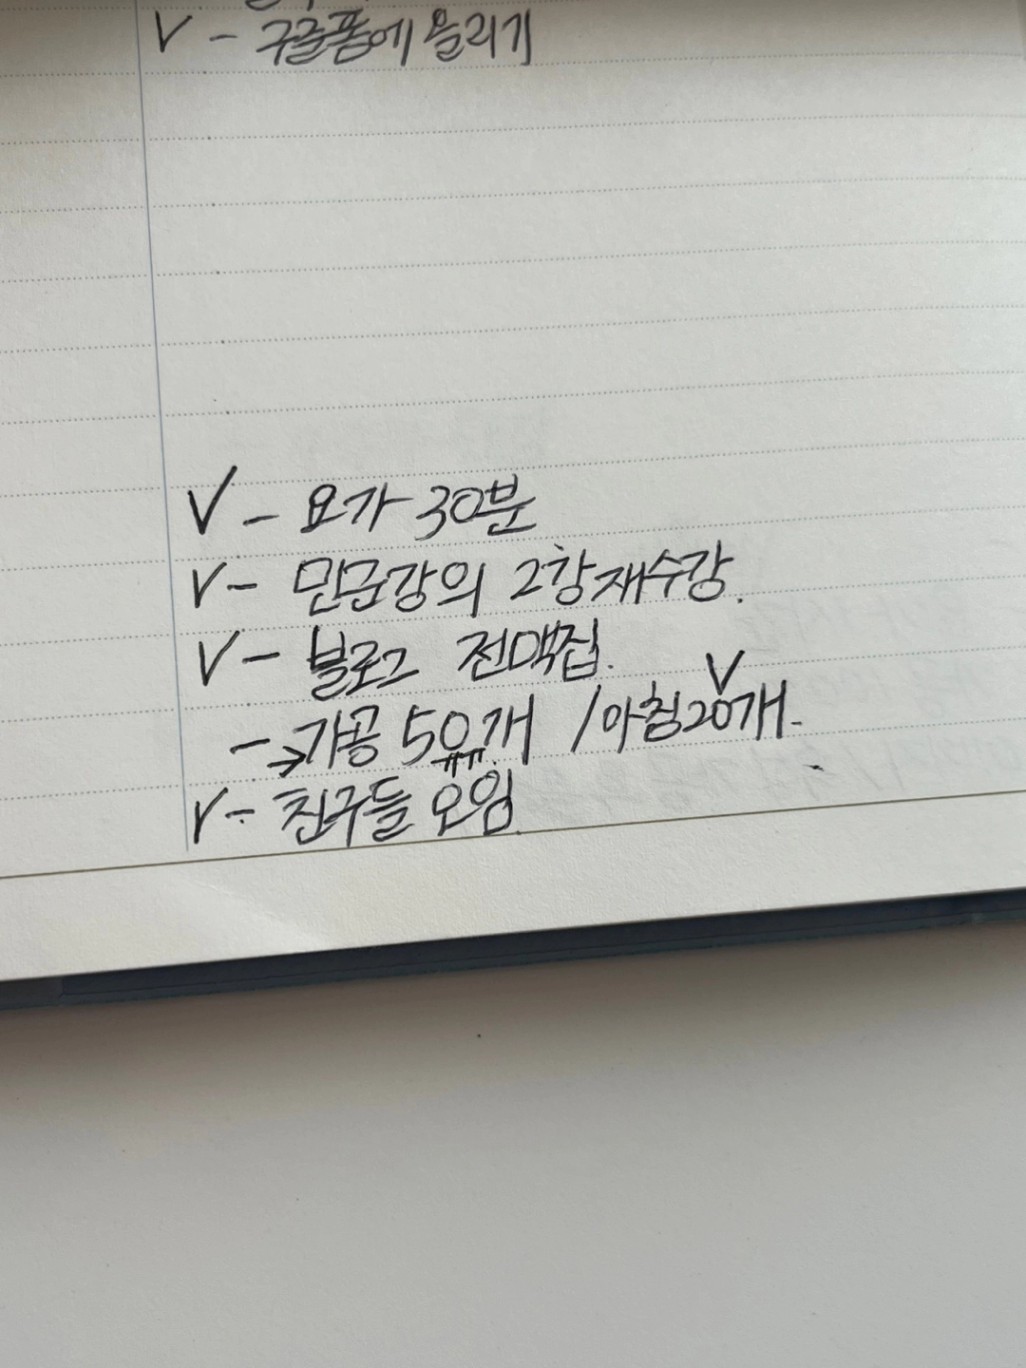 V - 구글폼에 올리기
V - 요가 30분
V - 민군강의 2강 재수강.
V - 블로그 전맥집.
- → 가공 50개 / 아침 20개 - V
V - 친구들 모임.